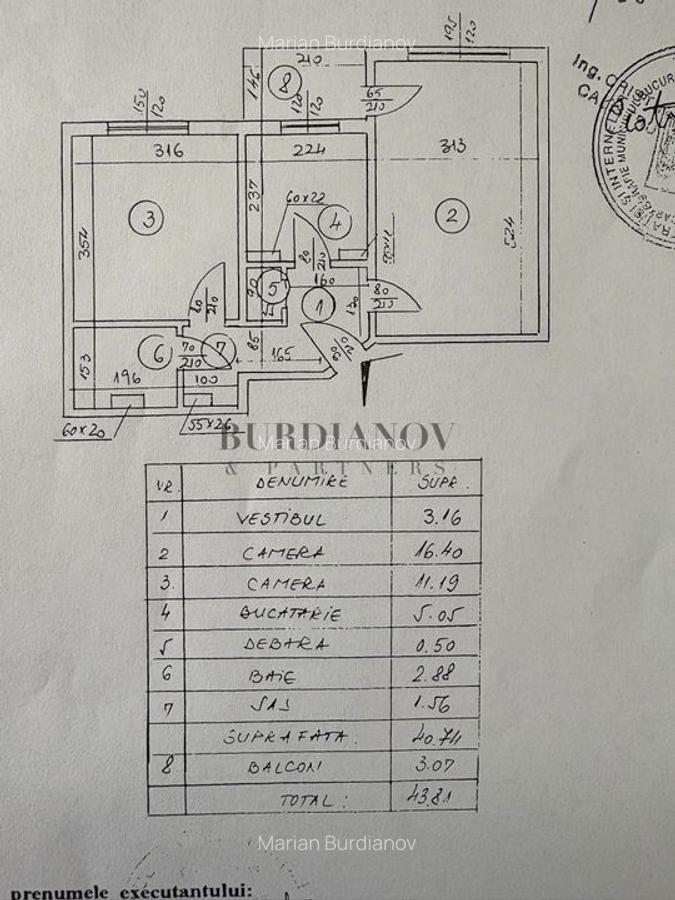 Marian Burdianov
195
120
210
8
146
65
210
Ing. CRIS
150
120
120
120
316
224
313
237
60x22
3
4
2
354
524
80
210
90
5
160
1
130
80
210
80
210
153
6
70
210
7
85
165
196
100
60x20
55x26
BURDIANOV
Marian Burdianov
& PARTNERS
NR. DENUMIRE SUPR.
1 VESTIBUL 3.16
2 CAMERA 16.40
3. CAMERA 11.19
4 BUCATARIE 5.05
5 DEBARA 0.50
6 BAIE 2.88
7 SAS 1.56
SUPRAFATA. 40.74
8 BALCON 3.07
TOTAL: 43.81
Marian Burdianov
prenumele executantului: